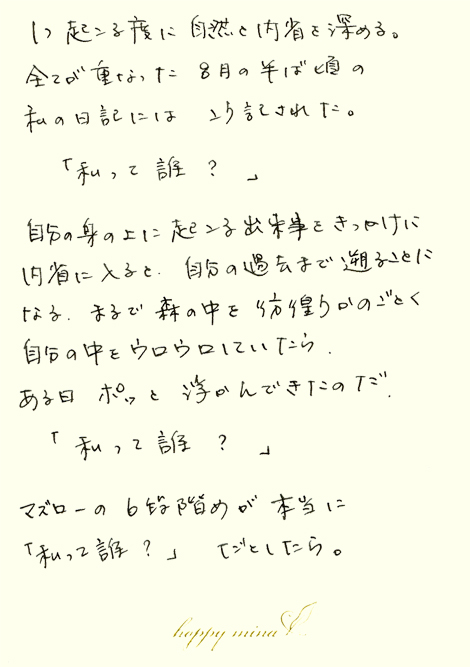 1つ起こる度に自然と内省を深める。
全てが重なった8月の半ば頃の
私の日記にはこう記された。
「私って誰?」
自分の身の上に起こる出来事をきっかけに
内省に入ると、自分の過去まで遡ることに
なる。まるで森の中を彷徨うかのごとく
自分の中をウロウロしていたら、
ある日 ポッと 浮かんできたのだ。
「私って誰?」
マズローの6段階めが本当に
「私って誰?」だとしたら。
happy mina